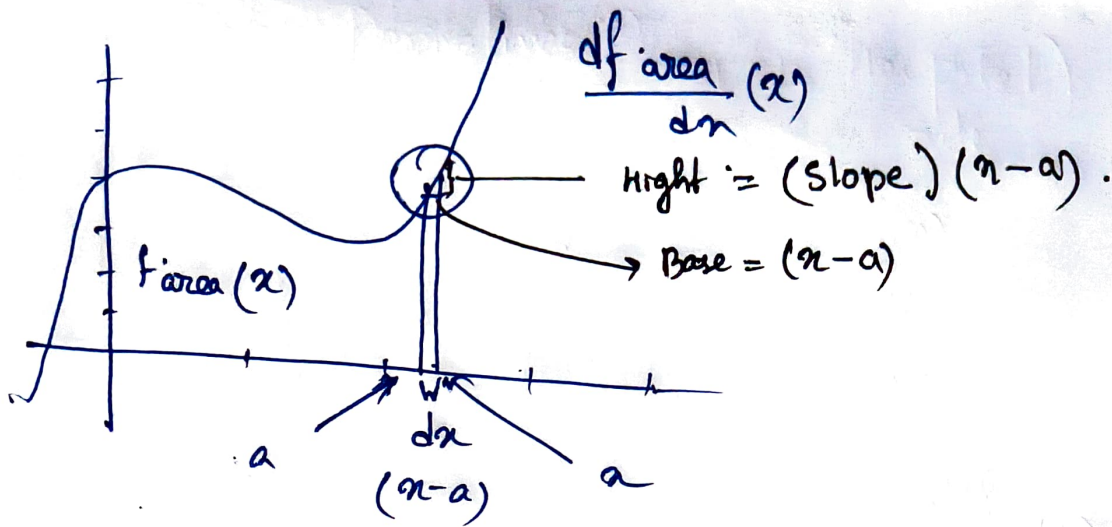 df area
dx (x)
Hight = (Slope) (x-a).
Base = (x-a)
f area (x)
a
dx
(x-a)
x